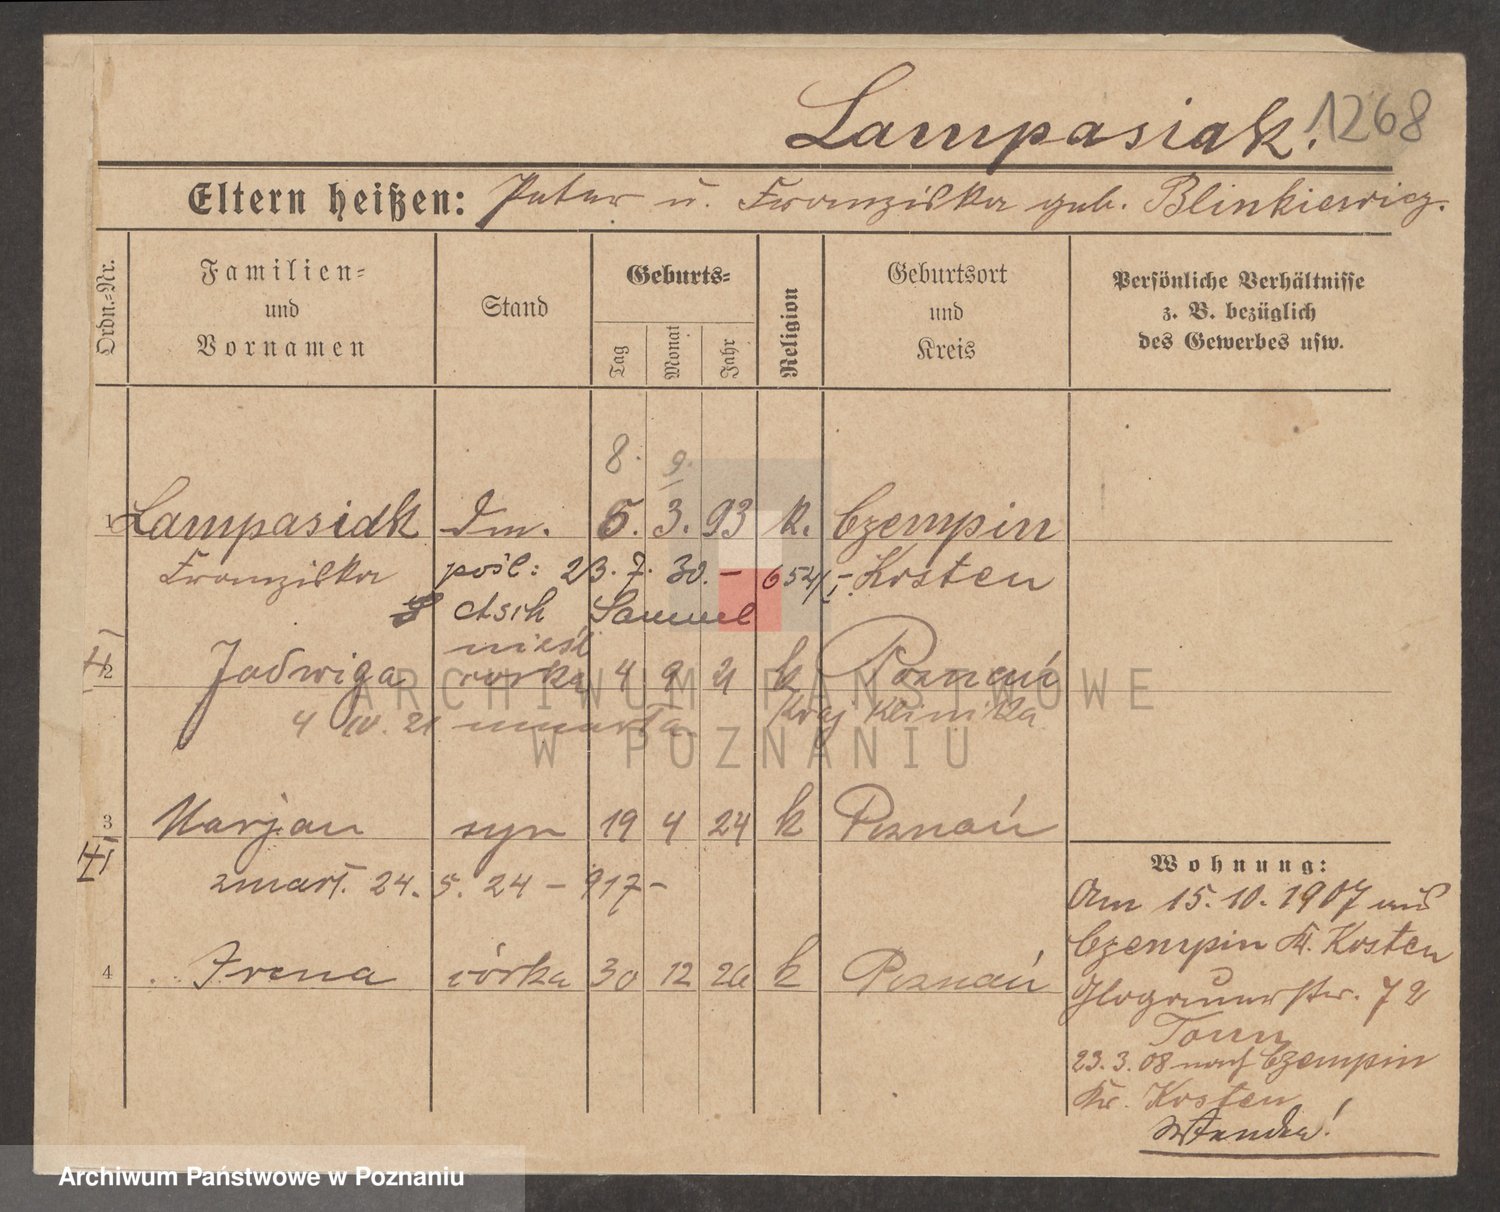 Lampasiak. 1268
Eltern heißen: Peter u. Franziska geb. Blinkiewicz.
Ordn.-Nr.
Familien-
und
Vornamen
Stand
Geburts-
Tag
Monat
Jahr
Religion
Geburtsort
und
Kreis
Persönliche Verhältnisse
z. B. bezüglich
des Gewerbes usw.
8. 9.
1 Lampasiak Dm. 5. 3. 93 K. Czempin
Franziska pośl: 23. 7. 30. – 654/I – Kosten
Samuel
nieśl
2 Jadwiga córka 4 9 21 k Poznań
4 IV. 21 umarła Kraj Klinika
3 Marjan syn 19 4 24 k Poznań
zmarł. 24. 5. 24 – 917 –
4 Irena córka 30 12 26 k Poznań
Wohnung:
Am 15.10.1907 aus
Czempin Kr. Kosten
Glogauerstr. 72
23.3.08 nach Czempin
Kr. Kosten
Wenden!
ARCHIWUM PAŃSTWOWE
W POZNANIU
Archiwum Państwowe w Poznaniu